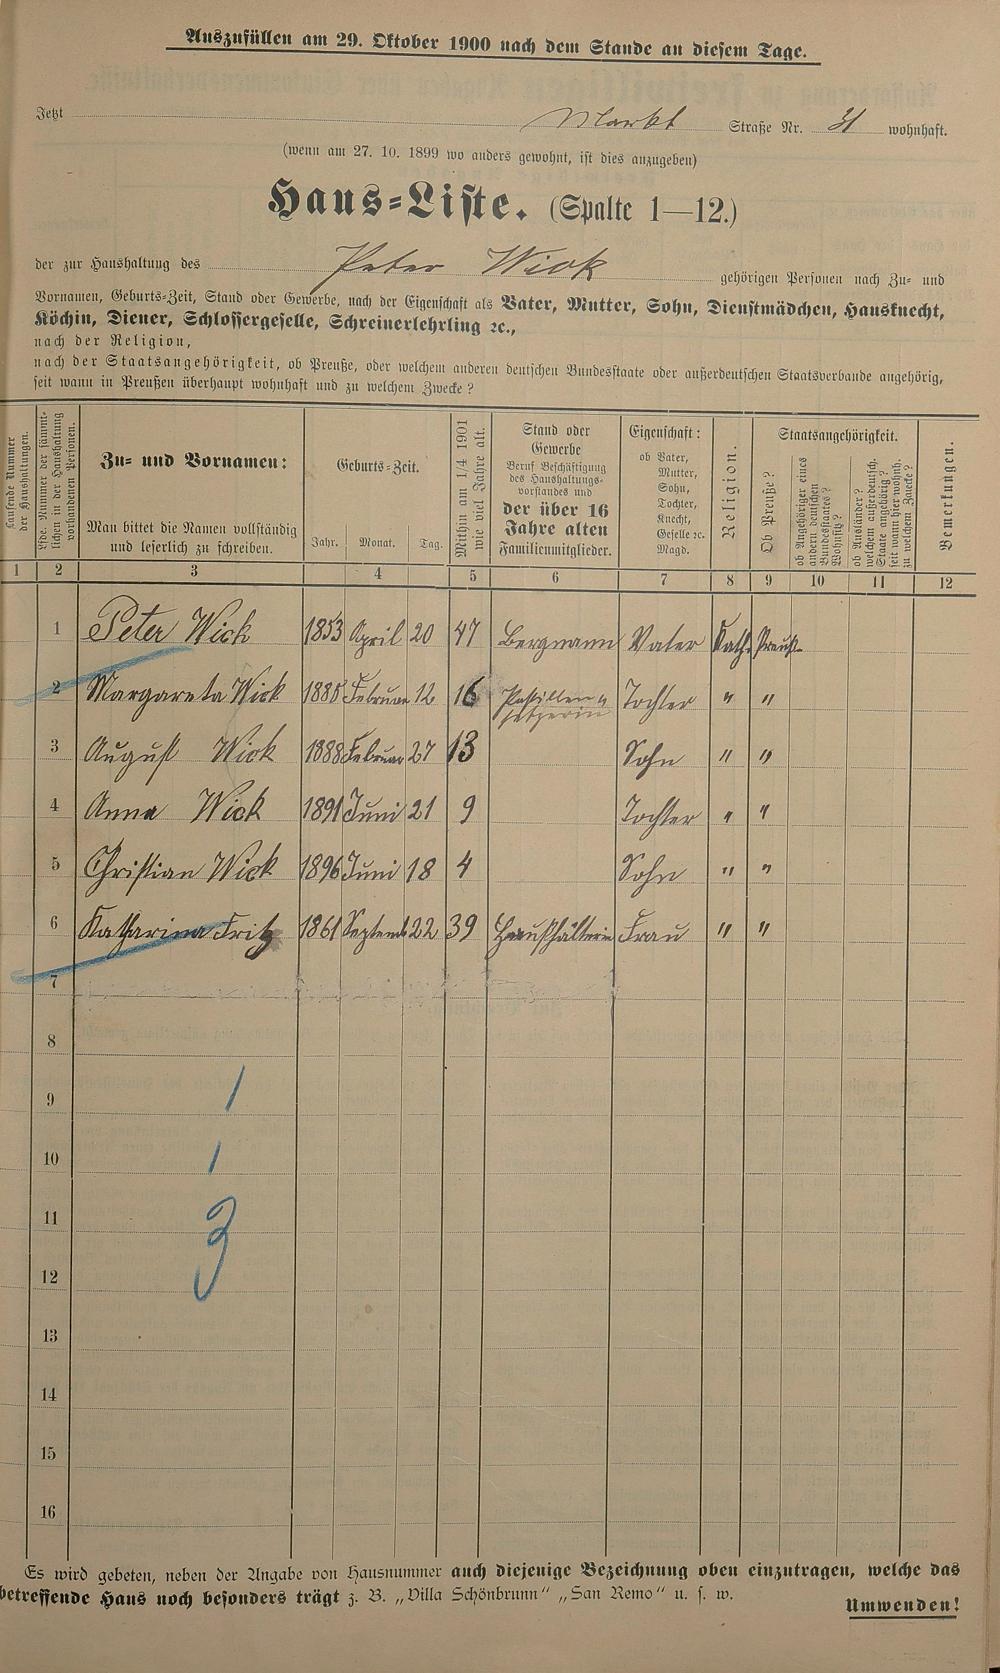 Auszufüllen am 29. Oktober 1900 nach dem Stande an diesem Tage.
Jetzt Markt Straße Nr. 31 wohnhaft.
(wenn am 27. 10. 1899 wo anders gewohnt, ist dies anzugeben)
Haus-Liste. (Spalte 1—12.)
der zur Haushaltung des Peter Wick gehörigen Personen nach Zu- und
Vornamen, Geburts-Zeit, Stand oder Gewerbe, nach der Eigenschaft als Vater, Mutter, Sohn, Dienstmädchen, Hausknecht,
Köchin, Diener, Schlossergeselle, Schreinerlehrling ꝛc.,
nach der Religion,
nach der Staatsangehörigkeit, ob Preuße, oder welchem anderen deutschen Bundesstaate oder außerdeutschen Staatsverbande angehörig,
seit wann in Preußen überhaupt wohnhaft und zu welchem Zwecke?
Laufende Nummer
der Haushaltungen.
Lfde. Nummer der sämmt-
lichen in der Haushaltung
vorhandenen Personen.
Zu- und Vornamen:
Man bittet die Namen vollständig
und leserlich zu schreiben.
Geburts-Zeit.
Jahr. Monat. Tag.
Mithin am 1/4 1901
wie viel Jahre alt.
Stand oder
Gewerbe
Beruf Beschäftigung
des Haushaltungs-
vorstandes und
der über 16
Jahre alten
Familienmitglieder.
Eigenschaft:
ob Vater,
Mutter,
Sohn,
Tochter,
Knecht,
Geselle ꝛc.
Magd.
Religion.
Staatsangehörigkeit.
Ob Preuße?
ob Angehöriger eines
andern deutschen
Bundesstaates?
Wohnsitz?
ob Ausländer?
welchem außerdeutsch.
Staate angehörig?
seit wann hier wohnh.
zu welchem Zwecke?
Bemerkungen.
1 2 3 4 5 6 7 8 9 10 11 12
1 Peter Wick 1853 April 20 47 Bergmann Vater Kath. Preuß.
2 Margareta Wick 1885 Februar 12 16 Tochter " "
3 August Wick 1888 Februar 27 13 Sohn " "
4 Anna Wick 1891 Juni 21 9 Tochter " "
5 Christian Wick 1896 Juni 18 4 Sohn " "
6 Katharina Fritz 1861 Septemb 22 39 Haushälterin Frau " "
7
8
9 1
10 1
11 3
12
13
14
15
16
Es wird gebeten, neben der Angabe von Hausnummer auch diejenige Bezeichnung oben einzutragen, welche das
betreffende Haus noch besonders trägt z. B. „Villa Schönbrunn" „San Remo" u. s. w.
Umwenden!